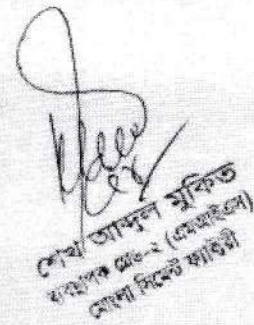 শেখ আব্দুল মুকিত
ব্যবস্থাপক গ্রেড-২ (এমআইএস)
মোংলা সিমেন্ট ফ্যাক্টরী